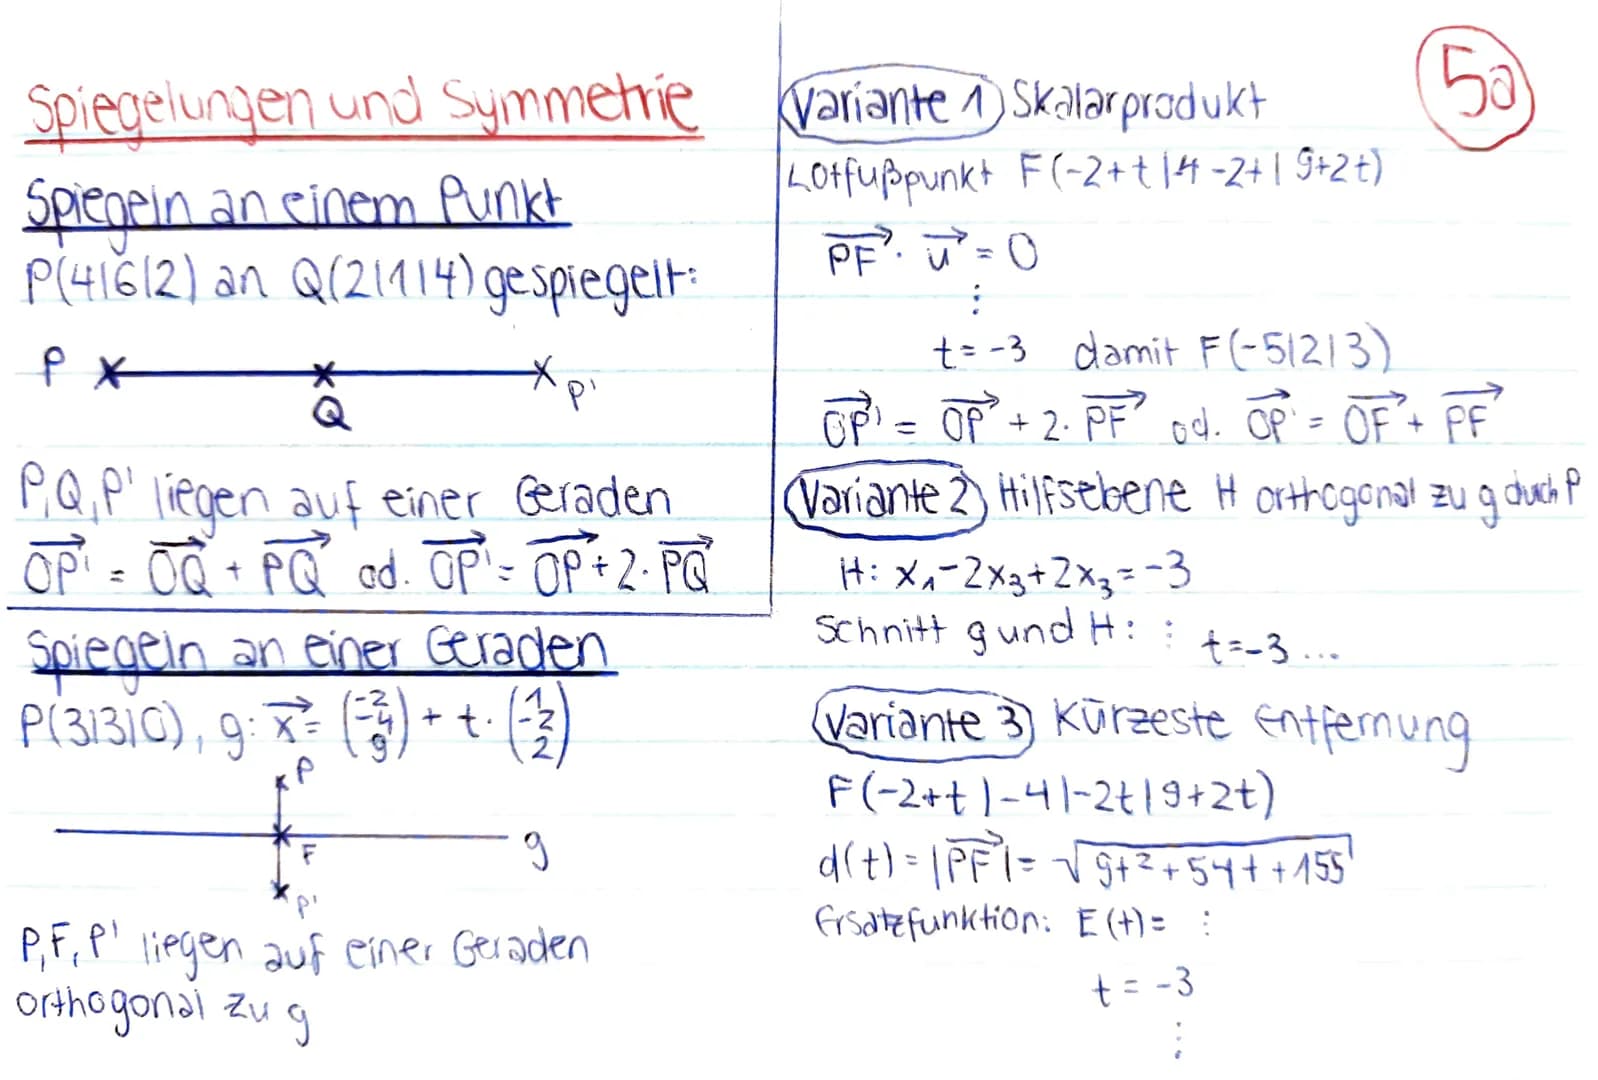 Spiegelungen und Symmetrie
Spiegeln an einem Punkt
P(4|6|2) an Q(2|1|4) gespiegelt:
P
Q
P'
P,Q,P' liegen auf einer Geraden
OP' = OQ + PQ od. OP' = OP + 2·PQ
Spiegeln an einer Geraden
P(3|3|0), g: x = (-2 -4 9) + t·(1 -2 2)
P
F
g
P'
P,F,P' liegen auf einer Geraden
orthogonal zu g
Variante 1 Skalarprodukt
5a
Lotfußpunkt F(-2+t|4-2t|9+2t)
PF · u = 0
⋮
t = -3 damit F(-5|2|3)
OP' = OP + 2·PF od. OP' = OF + PF
Variante 2 Hilfsebene H orthogonal zu g durch P
H: x₁-2x₃+2x₃=-3
Schnitt g und H: ⋮ t=-3...
Variante 3 Kürzeste Entfernung
F(-2+t|-4|-2t|9+2t)
d(t) = |PF| = √9t²+54t+155
Ersatzfunktion: E(t) = ⋮
t = -3
⋮